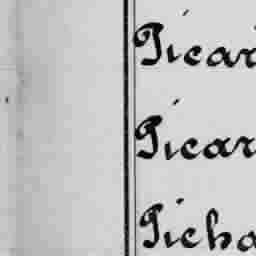 Picar
Picar
Picho